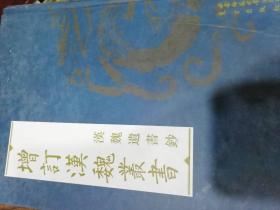 增訂漢魏叢書
漢魏遺書鈔